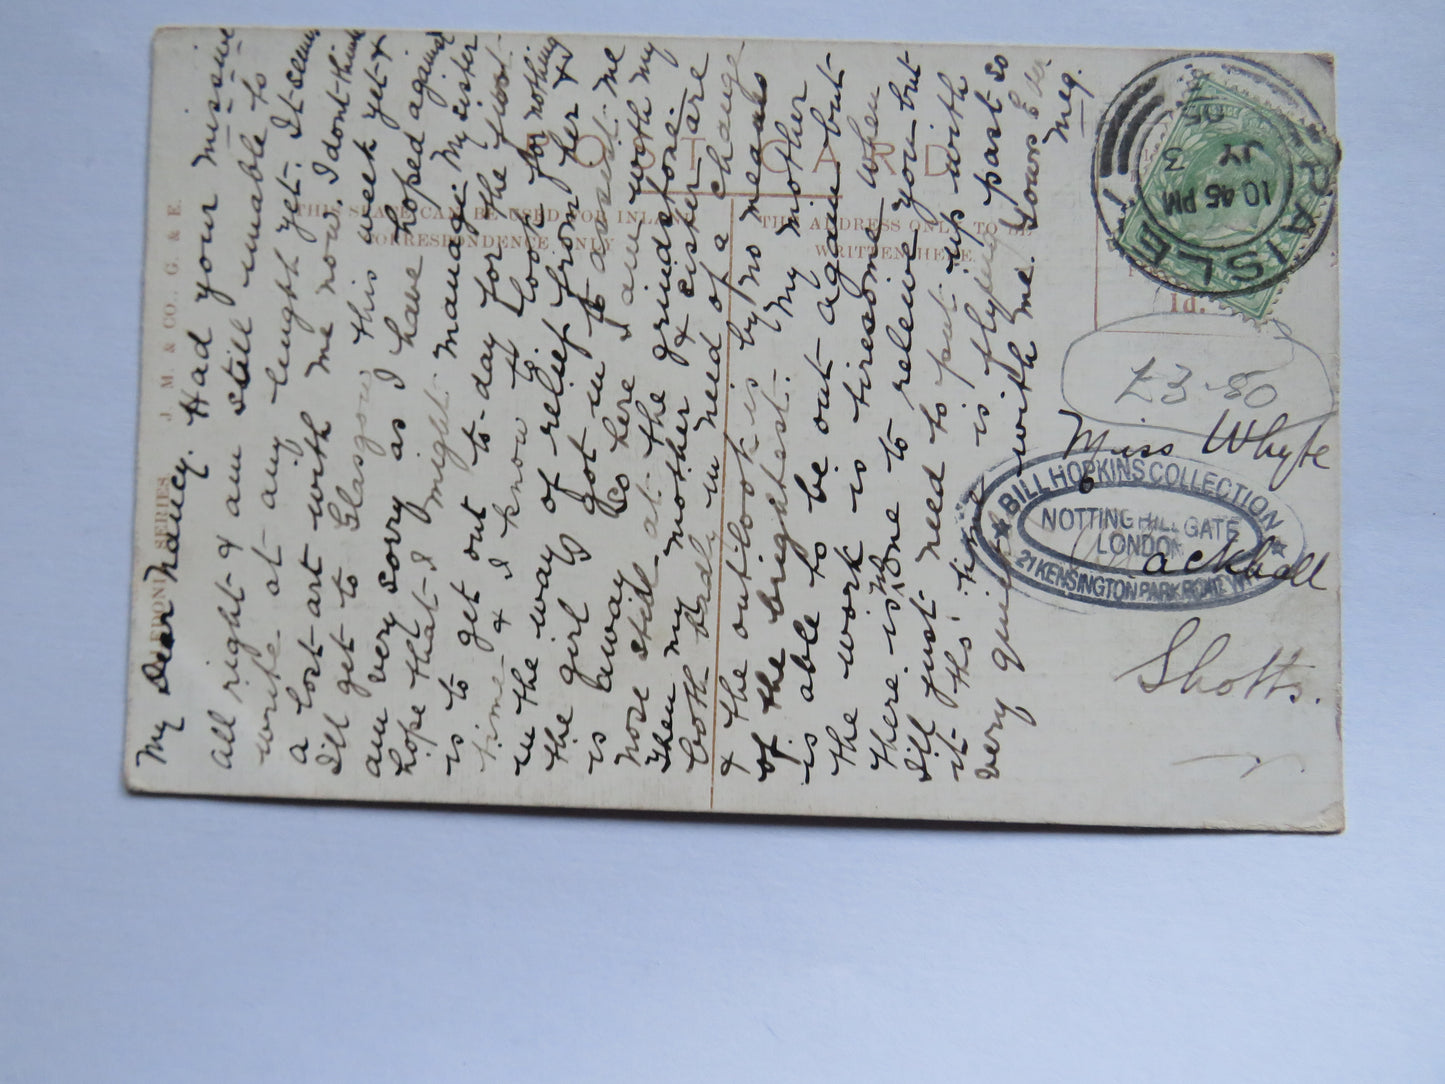 POST CARD
THIS SPACE CAN BE USED FOR INLAND
CORRESPONDENCE ONLY
THE ADDRESS ONLY TO BE
WRITTEN HERE.
J. M. & CO., G. & E.
SERIES
My Dear Nancy. Had your missive
all right & am still unable to
write at any length yet. It seems
a lost art with me now. I dont think
I'll get to Glasgow this week yet &
am very sorry as I have hoped against
hope that I might manage. My sister
is to get out to-day for the first
time & I know to look for nothing
in the way of relief from her &
the girl I got in to assist me
is away So here I am with my
nose still at the grindstone.
Then my mother & sister are
both badly in need of a change
& the outlook is by no means
of the brightest. My mother
is able to be out again but
the work is tiresome when
there is no one to relieve you but
I'll just need to put up with
it tho' time is flying past so
very quick with me. Yours Ever
Meg.
PAISLEY
10.45 PM
JY 3
05
1d.
£3-50
Miss Whyte
BILL HOPKINS COLLECTION
NOTTING HILL GATE
LONDON
21 KENSINGTON PARK ROAD W11
Shotts.